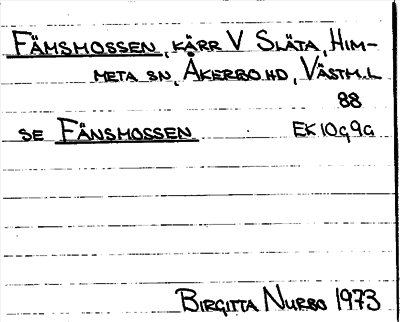 FÄMSMOSSEN, KÄRR V SLÄTA, HIM-
META SN, ÅKERBO HD, VÄSTM.L
88
SE FÄNSMOSSEN EK10g9a
BIRGITTA NURBO 1973